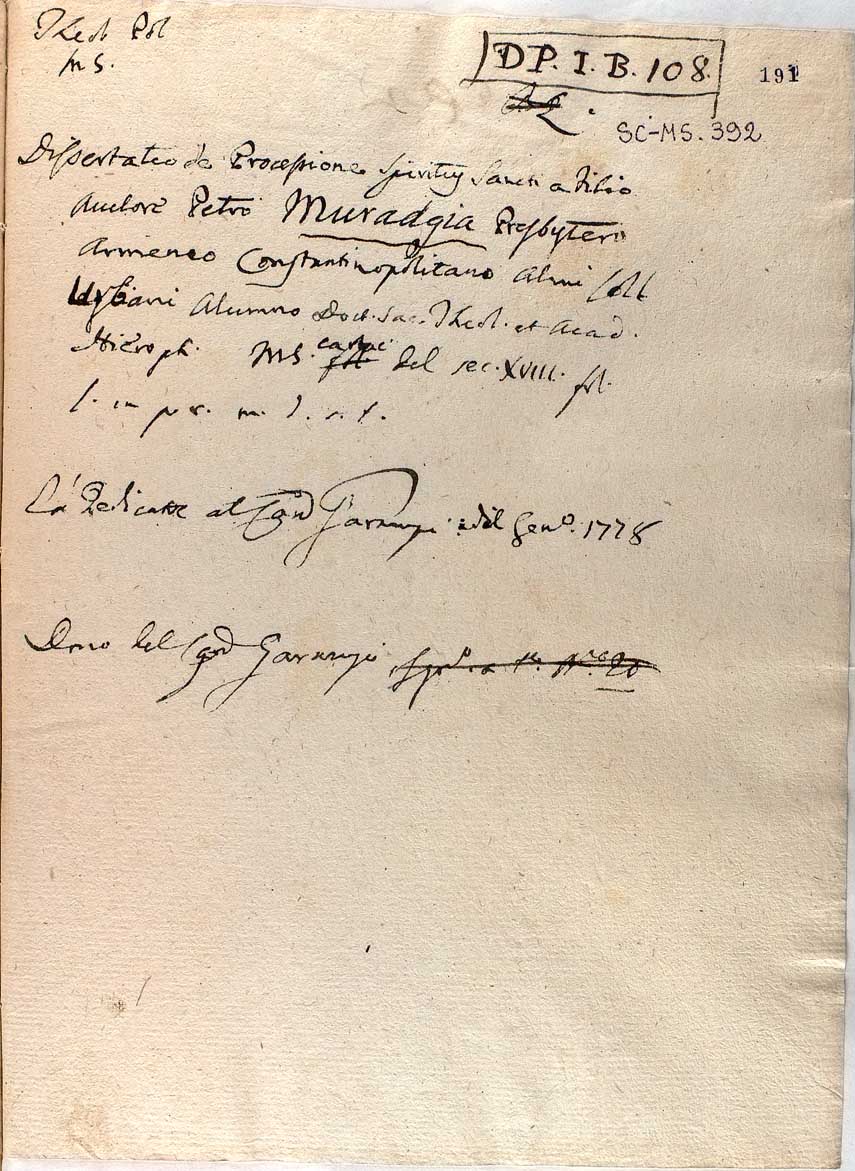 Theol Pol
MS.
DP. I. B. 108.
191
SC-MS. 392
Dissertatio de Processione Spiritus Sancti a Filio
Auctore Petro Muradgia Presbytero
Armeno Constantinopolitano Almi Coll
Urbani Alumno Doct. Sac. Theol. et Acad.
Hieroph. MS. cartac. del sec. XVIII. fol.
La Dedica al Card Garampi del Gen°. 1778
Dono del Card Garampi